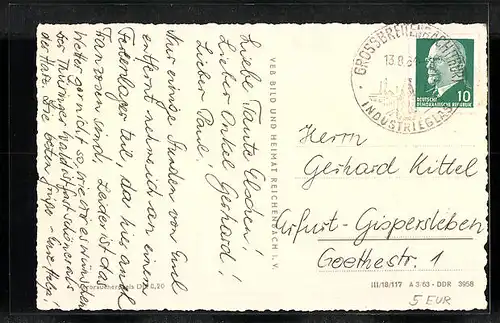 Liebe Tante Elschen!
Lieber Onkel Gerhard!
Lieber Paul!
Nur einige Stunden von Euch
entfernt nehme ich an einem
Ferienlager teil, da hier auch
Franzosen sind. Leider ist das
Wetter gar nicht so, wie wir es wünschen.
Der Thüringer Wald ist fast schöner als
der Harz. Die besten Grüße - Eure Helga!
VEB BILD UND HEIMAT REICHENBACH I. V.
Verbraucherpreis DM 0,20
GROSSBREITENBACH (THÜR)
13.8.64
INDUSTRIEGLAS
10
DEUTSCHE
DEMOKRATISCHE REPUBLIK
Herrn
Gerhard Kittel
Erfurt-Gispersleben
Goethestr. 1
III/18/117 A 3 63 · DDR 3958
5 EUR